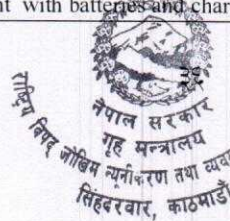 nt with batteries and char
नेपाल सरकार
गृह मन्त्रालय
राष्ट्रिय विपद् जोखिम न्यूनीकरण तथा व्यव
सिंहदरवार, काठमाडौं